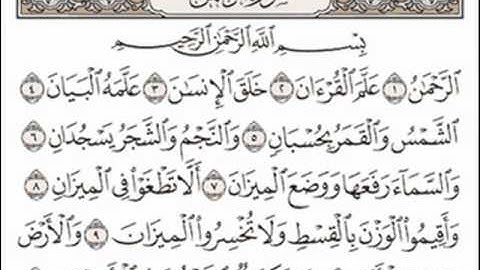 بِسْمِ اللَّهِ الرَّحْمَٰنِ الرَّحِيمِ
الرَّحْمَٰنُ ١ عَلَّمَ الْقُرْءَانَ ٢ خَلَقَ الْإِنسَٰنَ ٣ عَلَّمَهُ الْبَيَانَ ٤
الشَّمْسُ وَالْقَمَرُ بِحُسْبَانٍ ٥ وَالنَّجْمُ وَالشَّجَرُ يَسْجُدَانِ ٦
وَالسَّمَاءَ رَفَعَهَا وَوَضَعَ الْمِيزَانَ ٧ أَلَّا تَطْغَوْا فِي الْمِيزَانِ ٨
وَأَقِيمُوا الْوَزْنَ بِالْقِسْطِ وَلَا تُخْسِرُوا الْمِيزَانَ ٩ وَالْأَرْضَ